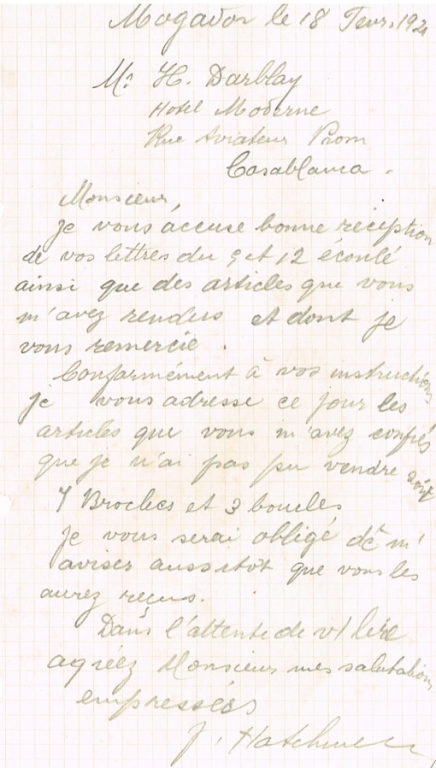 Mogador le 18 Fevr. 192
Mr H. Darblay
Hotel Moderne
Rue Aviateur Prom
Casablanca.
Monsieur,
Je vous accuse bonne réception
de vos lettres du 9 et 12 écoulé
ainsi que des articles que vous
m'avez rendus et dont je
vous remercie.
Conformément à vos instructions
je vous adresse ce jour les
articles que vous m'avez confiés
que je n'ai pas pu vendre soit
7 Broches et 3 boucles
Je vous serai obligé de m'
aviser aussitôt que vous les
aurez reçus.
Dans l'attente de
agréez Monsieur mes salutations
empressées
J.